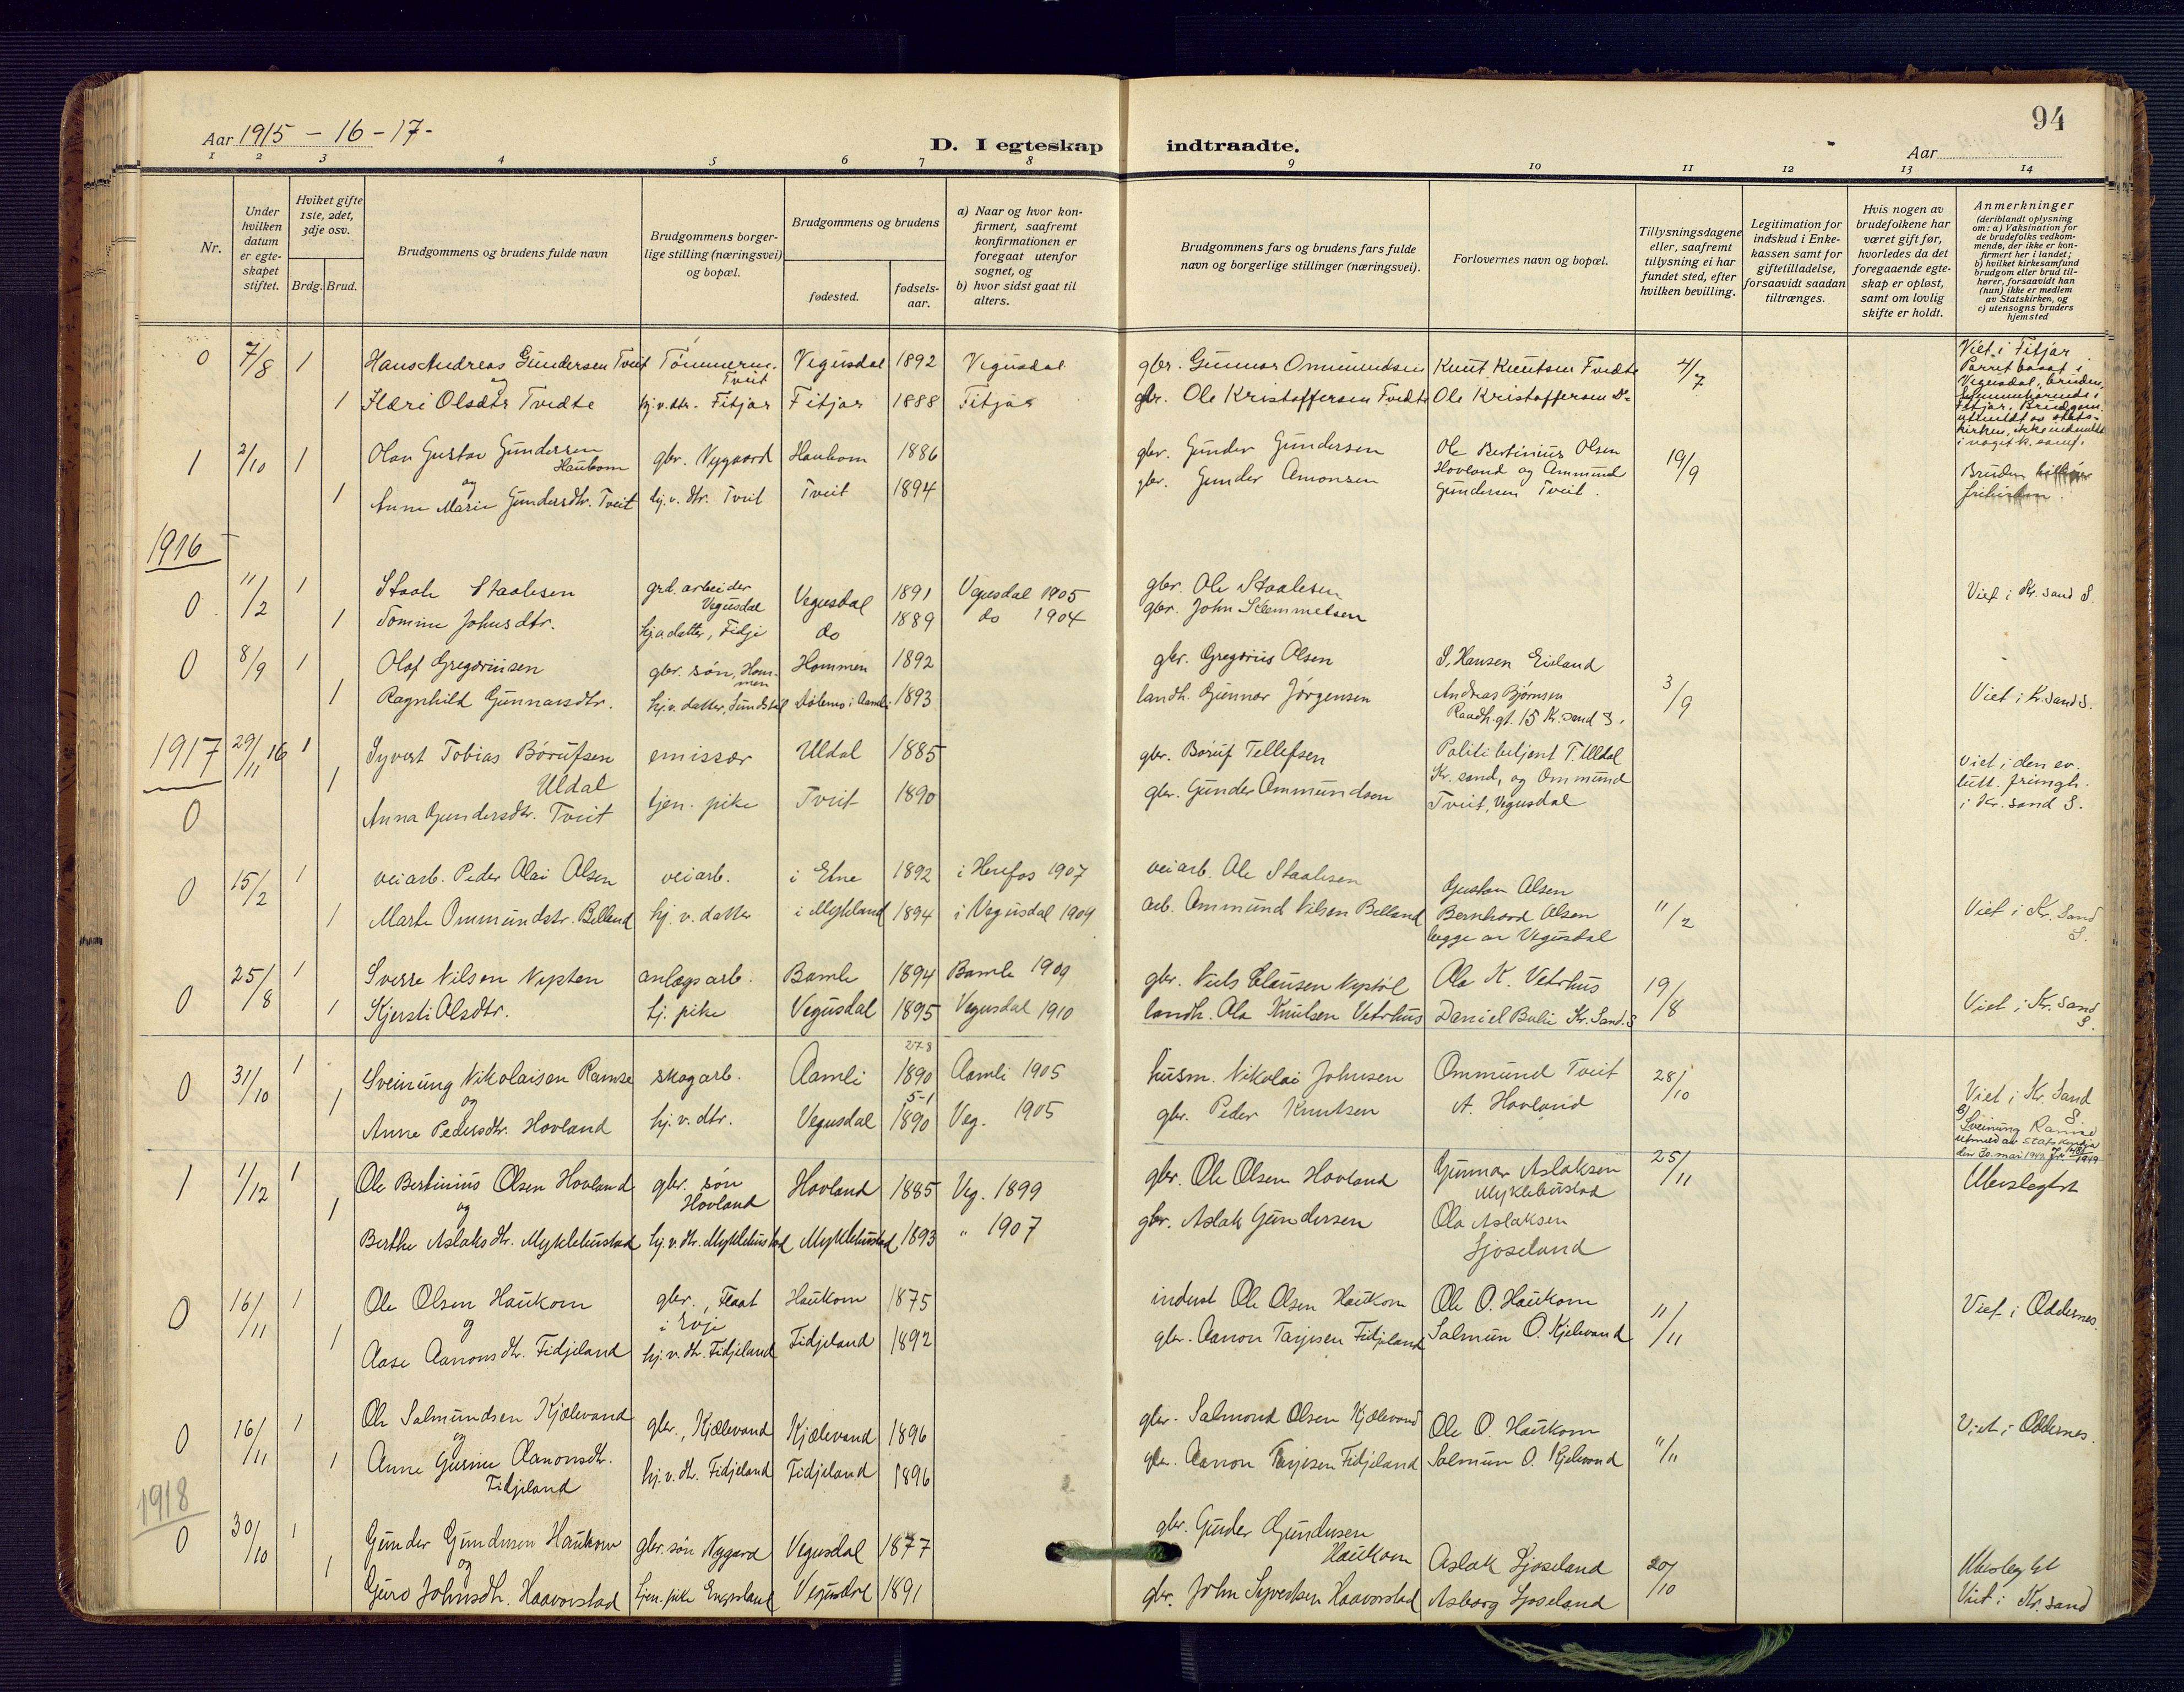 94
Aar 1915 - 16 - 17 -
D. I egteskap indtraadte.
Aar
1 2 3 4 5 6 7 8 9 10 11 12 13 14
Nr.
Under hvilken datum er egteskapet stiftet.
Hviket gifte 1ste, 2det, 3dje osv.
Brdg. Brud.
Brudgommens og brudens fulde navn
Brudgommens borgerlige stilling (næringsvei) og bopæl.
Brudgommens og brudens
fødested.
fødselsaar.
a) Naar og hvor konfirmert, saafremt konfirmationen er foregaat utenfor sognet, og
b) hvor sidst gaat til alters.
Brudgommens fars og brudens fars fulde navn og borgerlige stillinger (næringsvei).
Forlovernes navn og bopæl.
Tillysningsdagene eller, saafremt tillysning ei har fundet sted, efter hvilken bevilling.
Legitimation for indskud i Enkekassen samt for giftetilladelse, forsaavidt saadan tiltrænges.
Hvis nogen av brudefolkene har været gift før, hvorledes da det foregaaende egteskap er opløst, samt om lovlig skifte er holdt.
Anmerkninger
(deriblandt oplysning om: a) Vaksination for de brudefolks vedkommende, der ikke er konfirmert her i landet;
b) hvilket kirkesamfund brudgom eller brud tilhører, forsaavidt han (hun) ikke er medlem av Statskirken, og
c) utensogns bruders hjemsted
0 7/8 1 Hans Andreas Gundersen Tveit Tveit Vegusdal 1892 Vegusdal gbr. Gunnar Ommundsen Knut Knutsen Tvedte 4/7 Viet i Fitjar
og
1 Olsdtr Tvedte hj.v.dtr. Fitjar Fitjar 1888 Fitjar gbr. Ole Kristoffersen Tvedte Ole Kristoffersen Do
Parret bosat i Vegusdal, bruden hjemmehørende i Fitjar. Brudgom utmeldt av statskirken, ikke indmeldt i noget k. samf.
1 2/10 1 Olav Gustav Gundersen Haukom gbr. Nygaard Haukom 1886 gbr. Gunder Gundersen Ole Bertinius Olsen Hovland og Ammund Gundersen Tveit. 19/9 Bruden
og
1 Anne Marie Gundersdtr. Tveit hj.v. dtr. Tveit Tveit 1894 gbr. Gunder Amonsen
1916
0 11/2 1 Staale Staalesen grd. arbeider Vegusdal Vegusdal 1891 Vegusdal 1905 gbr. Ole Staalesen Viet i Kr. sand S.
1 Tomine Johnsdtr. hj.v. datter, Fidje do 1889 do 1904 gbr. John Stemmelsen
0 8/9 1 Olaf Gregoriusen gbr. søn, Hommen Hommen 1892 gbr. Gregorius Olsen S. Hansen Eieland 3/9 Viet i Kr. sand S.
1 Ragnhild Gunnarsdtr. hj.v. datter, Sundstøl Dølemo i Aamli 1893 landh. Gunnar Jørgensen Andreas Bjørnsen Raadh.gt. 15 Kr. sand S.
1917
0 29/11 16 1 Syvert Tobias Børufsen Uldal emissær Uldal 1885 gbr. Børuf Tellefsen Politibetjent T. Ulldal Kr. sand, og Ommund Tveit, Vegusdal Viet i den ev. luth. frimgh. i Kr. sand S.
1 Anna Gundersdtr. Tveit tjen. pike Tveit 1890 gbr. Gunder Ommundsen
0 15/2 1 veiarb. Peder Olai Olsen veiarb. i Etne 1892 i Herefos 1907 veiarb. Ole Staalesen Gustav Olsen Bernhard Olsen begge av Vegusdal 11/2 Viet i Kr. Sand S.
1 Marte Ommundstr. Belland hj. v. datter i Mykland 1894 i Vegusdal 1909 arb. Ommund Nilsen Belland
0 25/8 1 Sverre Nilsen Nypten anlegsarb. Bamle 1894 Bamle 1909 gbr. Niels Clausen Nyptøl Ola K. Vetrhus 19/8 Viet i Kr. Sand S.
1 Kjersti Olsdtr. hj. pike Vegusdal 1895 Vegusdal 1910 landh. Ola Knutsen Vetrhus Daniel Bulie Kr. Sand. S
0 31/10 1 Sveinung Nikolaisen Ramse skogarb. Aamli 27-8 1890 Aamli 1905 husm. Nikolai Johnsen Ommund Tveit 28/10 Viet i Kr. Sand S
og
1 Anne Pedersdtr. Hovland hj.v. dtr. Vegusdal 5-1 1890 Veg. 1905 gbr. Peder Knutsen A. Hovland
b) Sveinung Ramse utmeld av statskyrkja den 30. mai 1949
1 1/12 1 Ole Bertinius Olsen Hovland gbr. søn Hovland Hovland 1885 Veg. 1899 gbr. Ole Olsen Hovland Gunnar Aslaksen Myklebustad 25/11 Ubeslegtet
og
1 Berthe Aslaksdtr. Myklebustad hj.v. dtr. Myklebustad Myklebustad 1893 " 1907 gbr. Aslak Gundersen Ola Aslaksen Ljoseland
0 16/11 1 Ole Olsen Haukom gbr., Flaat i Evje Haukom 1875 inderst Ole Olsen Haukom Ole O. Haukom 11/11 Viet i Oddernes.
og
1 Aase Aanonsdtr. Fidjeland hj.v. dtr. Fidjeland Fidjeland 1892 gbr. Aanon Tarjesen Fidjeland Salmun O. Kjelevand
0 16/11 1 Ole Salmundsen Kjølevand gbr., Kjælevand Kjælevand 1896 gbr. Salmond Olsen Kjølevand Ole O. Haukom 11/11 Viet i Oddernes.
og
1 Anne Gurine Aanonsdtr. Fidjeland hj.v. dtr. Fidjeland Fidjeland 1896 gbr. Aanon Tarjesen Fidjeland Salmun O. Kjelevand
1918
0 30/10 1 Gunder Gundersen Haukom gbr. søn Nygard Vegusdal 1877 gbr. Gunder Gundersen Haukom Aslak Ljoseland 20/10 Ubeslegtet
og
1 Guro Johnsdtr. Haavorstad tjen. pike Engesland Vegusdal 1891 gbr. John Syvertsen Haavorstad Asborg Ljoseland Viet i Kr. sand